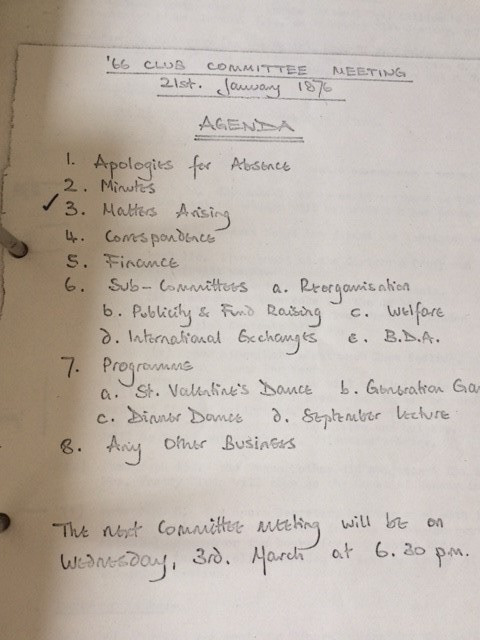 '66 CLUB COMMITTEE MEETING
21st. January 1876
AGENDA
1. Apologies for Absence
2. Minutes
✓ 3. Matters Arising
4. Correspondence
5. Finance
6. Sub-Committees a. Reorganisation
b. Publicity & Fund Raising c. Welfare
d. International Exchanges e. B.D.A.
7. Programme
a. St. Valentine's Dance b. Generation Ga
c. Dinner Dance d. September Lecture
8. Any Other Business
The next Committee meeting will be on
Wednesday, 3rd. March at 6.30 pm.